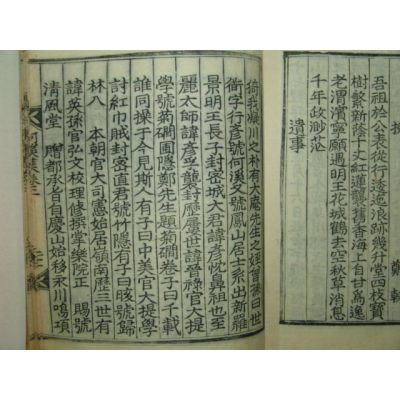 吾祖於公表從行逶迤浪跡幾升堂四枝寶
樹繁新蔭十丈紅蓮襲舊香海上自甘爲逸
老渭濱寧願遇明王花城鶴去空秋草消息
千年政眇茫
遺事
我凝川之朴有大庵先生之姪曾孫曰世
字行彥號何溪又號鳳山居士系出新羅
景明王長子封密城大君諱彥忱鼻祖也至
麗太師諱彥孚襲封歷屢世諱晉祿官大提
學號菊磵圃隱鄭先生題菊磵卷子曰千載
誰同操于今見斯人有子曰中美官大提學
討紅巾賊封密直君號竹隱有子曰晐號歸
林入 本朝官大司憲始居嶺南歷三世有
諱英孫官弘文校理修撰掌樂院正 賜號
清風堂 贈都承旨自慶山始移永川鳴項